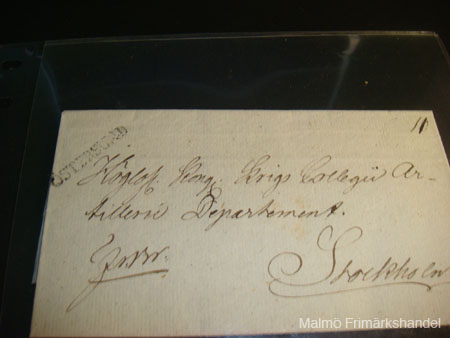 ÖSTERSUND
11
Höglofl. Kong. Krigs Collegii Ar-
tillerie Departement.
Stockholm
Malmö Frimärkshandel